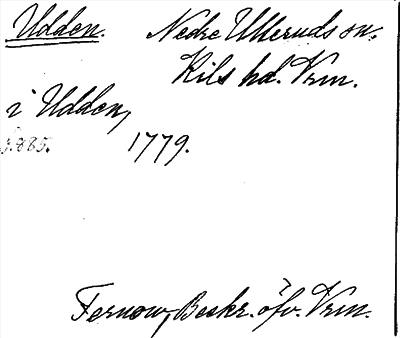 Udden. Nedre Ulleruds sn.
Kils hd. Vrm.
i Udden,
s. 885. 1779.
Fernow, Beskr. öfv. Vrm.